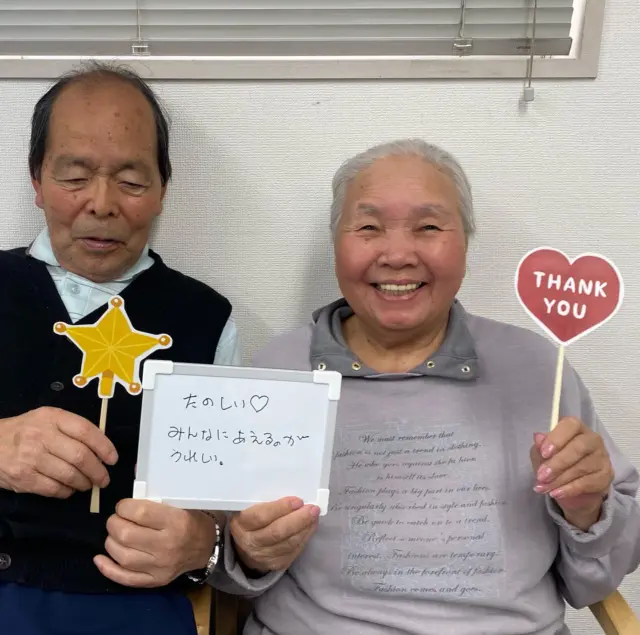 たのしい♡
みんなにあえるのが
うれしい。
THANK
YOU
We must remember that
fashion may not be a trend in clothing.
is himself its slave.
Fashion plays a big part in our lives.
Be quick to catch on to a trend.
interest. Fashions are temporary.
Be always in the forefront of fashion.
Fashion comes and goes.